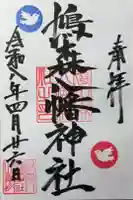 奉拝
鳩森八幡神社
令和八年四月廿六日